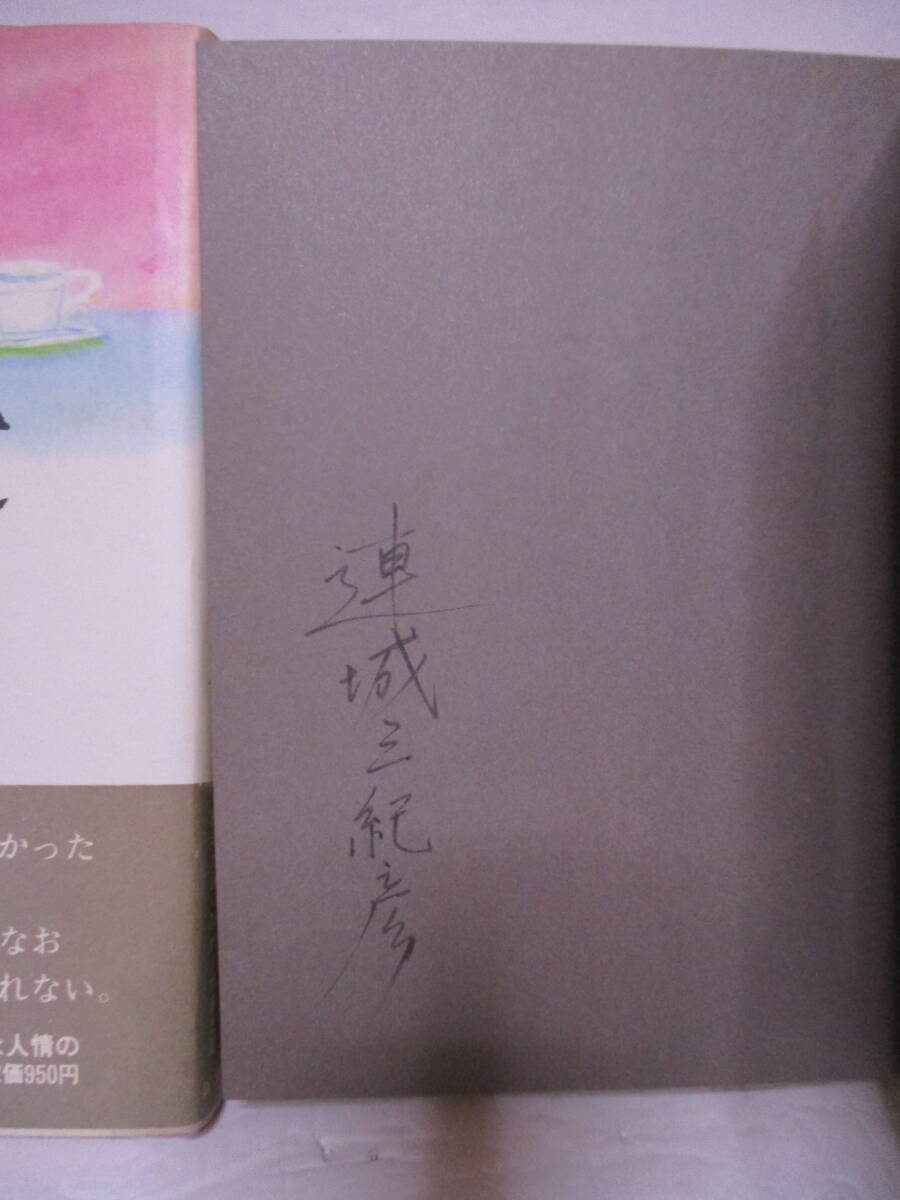 連城三紀彦
かった
なお
れない。
人情の
価950円